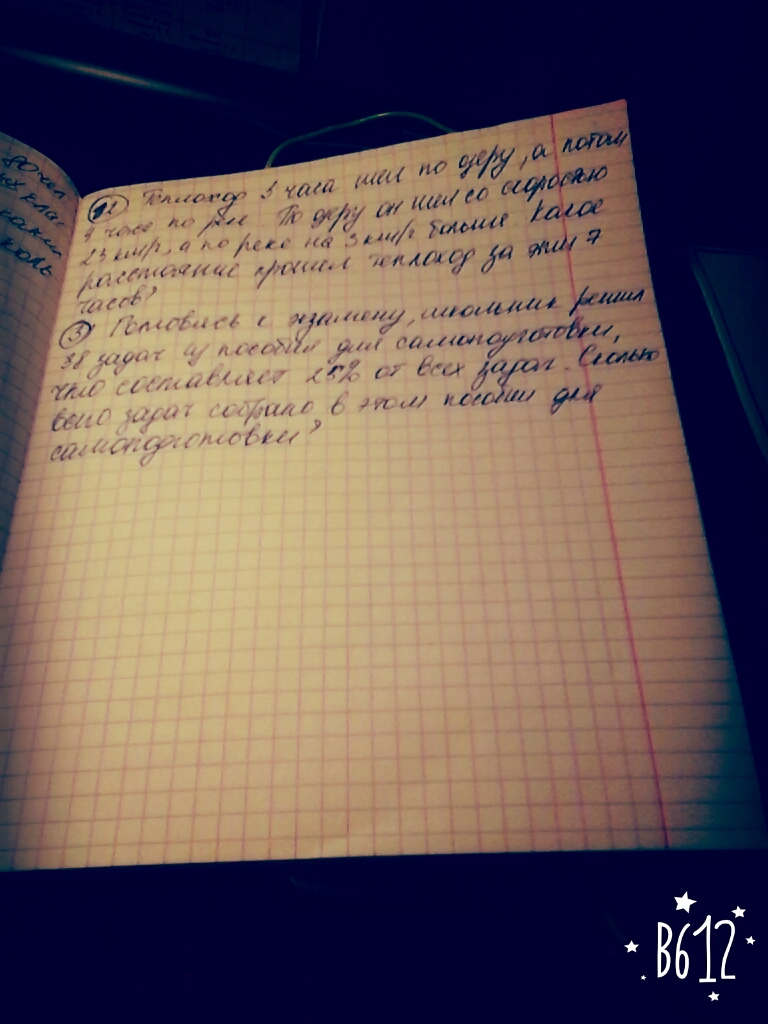 дочел
ых клас
каким
коль
2) Теплоход 3 часа шел по озеру, а потом
4 часа по реке По озеру он шел со скоростью
23 км/ч, а по реке на 3 км/ч больше Какое
расстояние прошел теплоход за эти 7
часов?
3) Готовясь к экзамену, школьник решил
38 задач из пособия для самоподготовки,
что составляет 25% от всех задач. Сколько
всего задач собрано в этом пособии для
самоподготовки?
B612